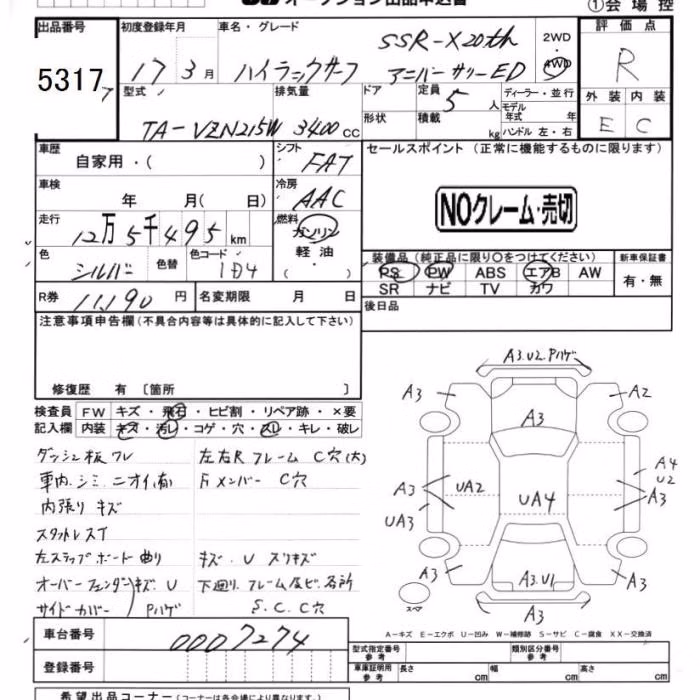 オークション出品申込書
①会場控
出品番号
5317
初度登録年月
17 3月
車名・グレード
ハイラックサーフ
SSR-X20th
アニバーサリーED
2WD
4WD
評価点
R
外装 内装
E C
型式
TA-VZN215W
排気量
3400cc
ドア
形状
定員
5人
積載
kg
ディーラー・並行
モデル年式 年
ハンドル 左・右
車歴
自家用・( )
シフト
FAT
セールスポイント (正常に機能するものに限ります)
車検
年 月( 日)
冷房
AAC
NOクレーム・売切
走行
12万5千495km
燃料
ガソリン
軽油
( ・ )
色
シルバー
色替
色コード
1D4
装備品(純正品に限り〇をつけてください)
PS PW ABS エアB AW
SR ナビ TV カワ
新車保証書
有・無
R券
11,190円
名変期限 月 日
後日品
注意事項申告欄(不具合内容等は具体的に記入して下さい)
修復歴 有 〔箇所 〕
検査員記入欄
FW キズ・飛石・ヒビ割・リペア跡・×要
内装 キズ・汚レ・コゲ・穴・スレ・キレ・破レ
ダッシュ板ワレ
左右Rフレーム C穴(大)
車内シミ ニオイ(有)
Fメンバー C穴
内張りキズ
スタットレス丁
左ステップボード曲り
キズ.U スリキズ
オーバーフェンダーキズ.U
下廻り.フレーム及ビ.各所
サイドカバー Pハゲ
S.C.C穴
A3.U2.Pハゲ
A3
A2
A3
A4
U2
A3
UA2
UA4
A3
UA3
A3
A3.U1
A3
A3
スペア
A-キズ E-エクボ U-凹み W-補修跡 S-サビ C-腐食 XX-交換済
車台番号
0007274
登録番号
型式指定番号
参考
類別区分番号
参考
車庫証明用
参考
長さ cm
幅 cm
高さ cm
希望出品コーナー(コーナーは各会場により異なります。)